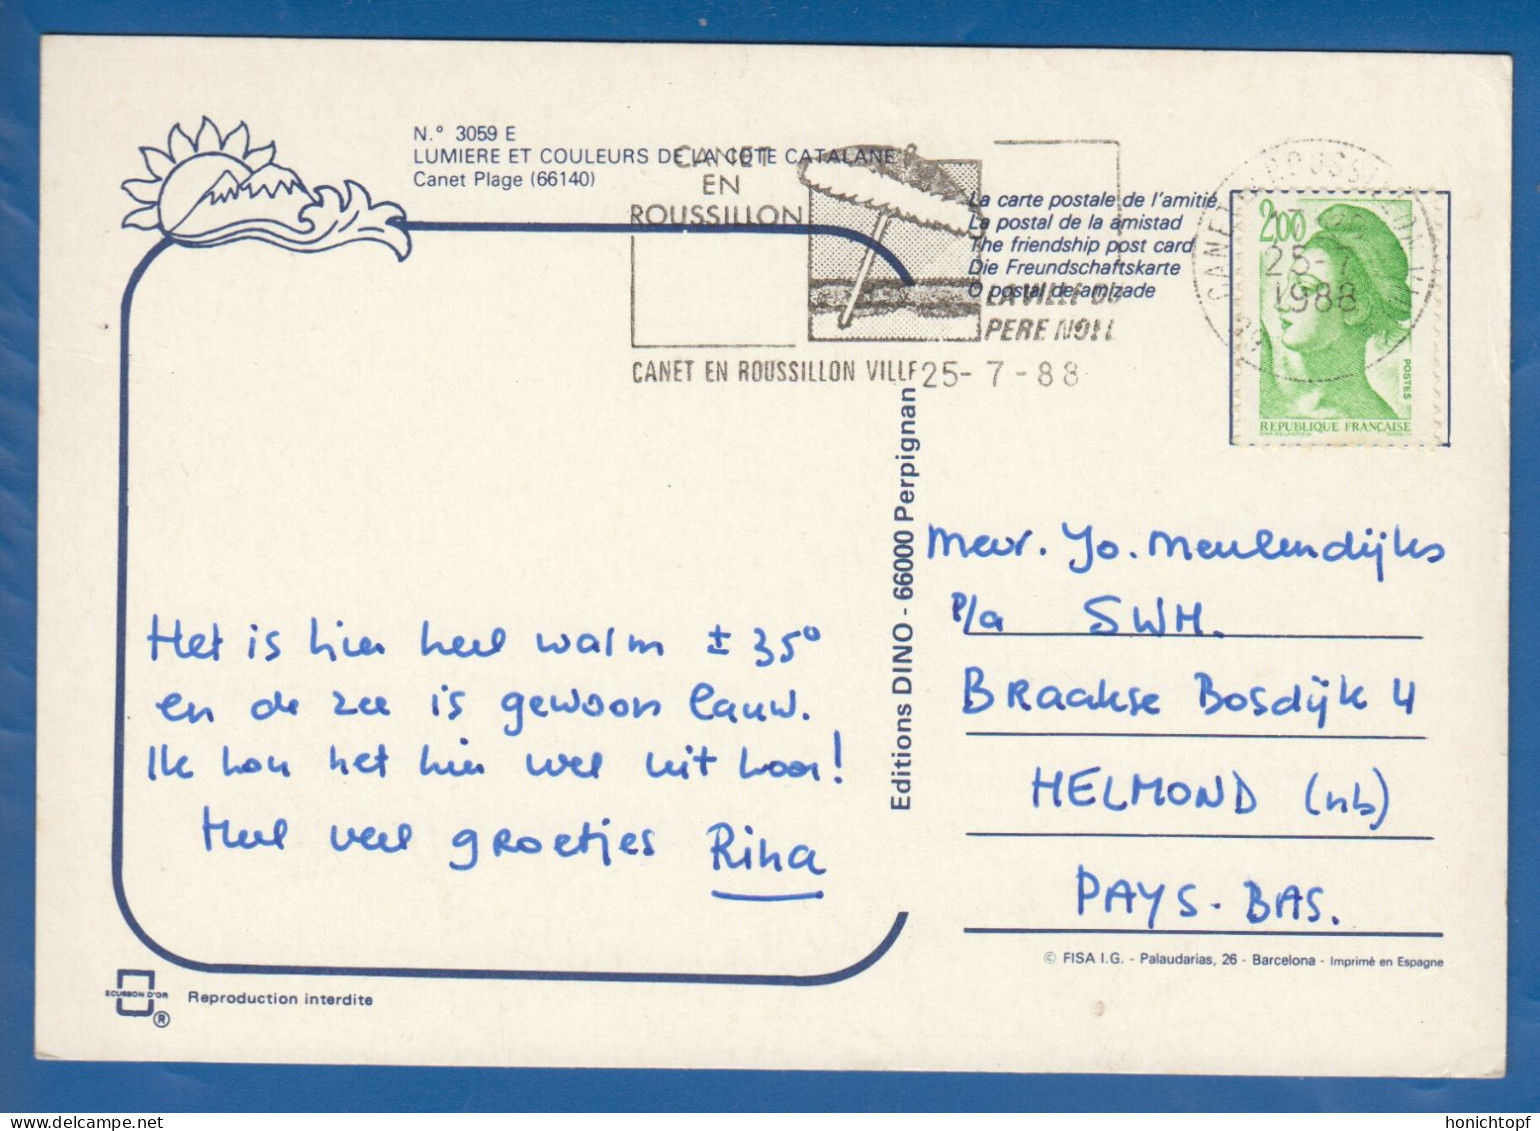 N.° 3059 E
LUMIERE ET COULEURS DE LA COTE CATALANE
Canet Plage (66140)
CANET
EN
ROUSSILLON
LA VILLE DU
PERE NOEL
CANET EN ROUSSILLON VILLE 25-7-88
La carte postale de l'amitié
La postal de la amistad
The friendship post card
Die Freundschaftskarte
O postal de amizade
2,00
25-7
1988
POSTES
REPUBLIQUE FRANÇAISE
Het is hier heel warm ± 35°
en de zee is gewoon lauw.
Ik hou het hier wel uit hoor!
Heel veel groetjes Rina
Editions DINO - 66000 Perpignan
Mevr. Jo. Meulendijks
P/a SWH.
Braakse Bosdijk 4
HELMOND (nb)
PAYS-BAS.
© FISA I.G. - Palaudarias, 26 - Barcelona - Imprimé en Espagne
ECUSSON D'OR
®
Reproduction interdite
honichtopf.delcampe.net
honichtopf